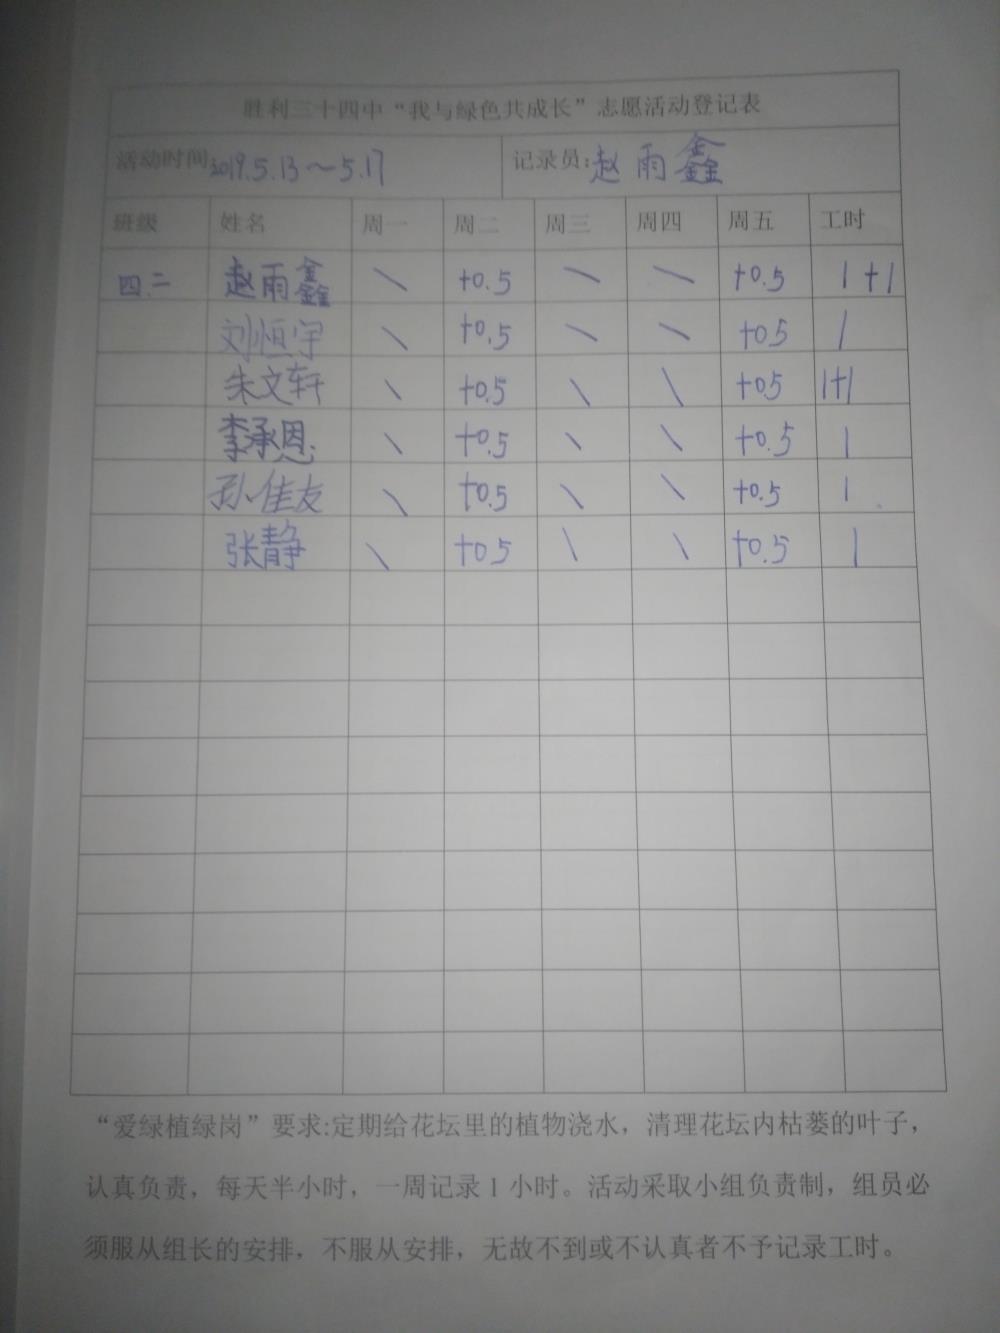 胜利三十四中“我与绿色共成长”志愿活动登记表
活动时间 2019.5.13～5.17 记录员:赵雨鑫
班级 姓名 周一 周二 周三 周四 周五 工时
四.二 赵雨鑫 \ +0.5 \ \ +0.5 1+1
刘恒宇 \ +0.5 \ \ +0.5 1
朱文轩 \ +0.5 \ \ +0.5 1+1
李承恩 \ +0.5 \ \ +0.5 1
孙佳友 \ +0.5 \ \ +0.5 1
张静 \ +0.5 \ \ +0.5 1
“爱绿植绿岗”要求:定期给花坛里的植物浇水，清理花坛内枯萎的叶子，
认真负责，每天半小时，一周记录1小时。活动采取小组负责制，组员必
须服从组长的安排，不服从安排，无故不到或不认真者不予记录工时。